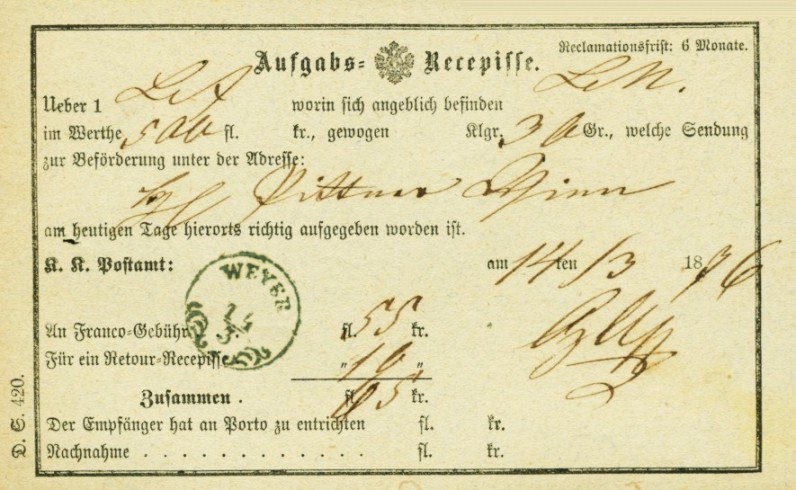 Reclamationsfrist: 6 Monate.
Aufgabs- Recepisse.
Ueber 1 worin sich angeblich befinden
im Werthe 500 fl. kr., gewogen Klgr. 30 Gr., welche Sendung
zur Beförderung unter der Adresse:
Pittner Wien
am heutigen Tage hierorts richtig aufgegeben worden ist.
K. K. Postamt: am 14ten /3 1876
WEYER
14
3
An Franco-Gebühr fl. 55 kr.
Für ein Retour-Recepisse " 10 "
Zusammen . fl. 65 kr.
Der Empfänger hat an Porto zu entrichten fl. kr.
Nachnahme . . . . . . . . . . . . fl. kr.
D. S. 420.